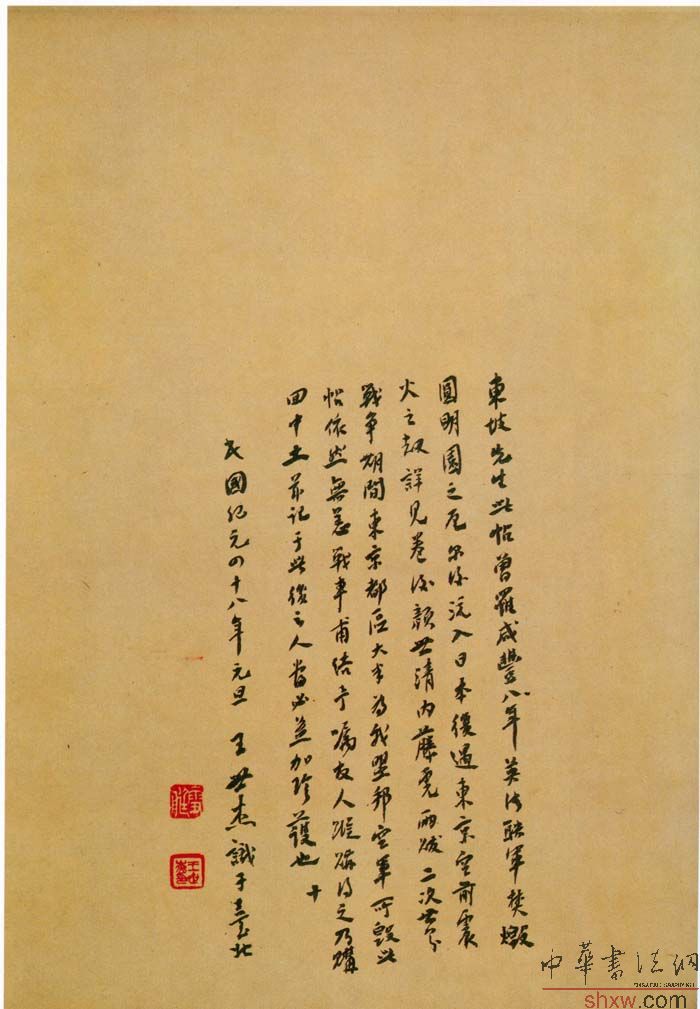 東坡先生此帖曾罹咸豐八年英法聯軍焚燬
圓明園之厄爾後流入日本復遇東京空前震
火之劫詳見卷後顏世清內藤虎兩跋二次世界
戰爭期間東京都區大半為我盟邦空軍所毀此
帖依然無恙戰事甫結予囑友人蹤跡得之乃購
回中土茲記于此後之人當必益加珍護也 十
民國紀元四十八年元旦 王世杰識于臺北
雪艇
王世杰
中華書法網
shxw.com